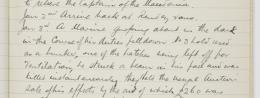 to relieve the Captain of the Massonia.
Jan 2nd Arrive back at Kandavu.
Jan 3rd A Marine groping about in the dark
in the Course of his duties fell down No 3 hold used
as a bunker, one of the hatches being left off for
Ventilation, he struck a beam in his fall and was
killed instantaneously. They held the usual Auction
Sale of his effects by the end of which £260 was